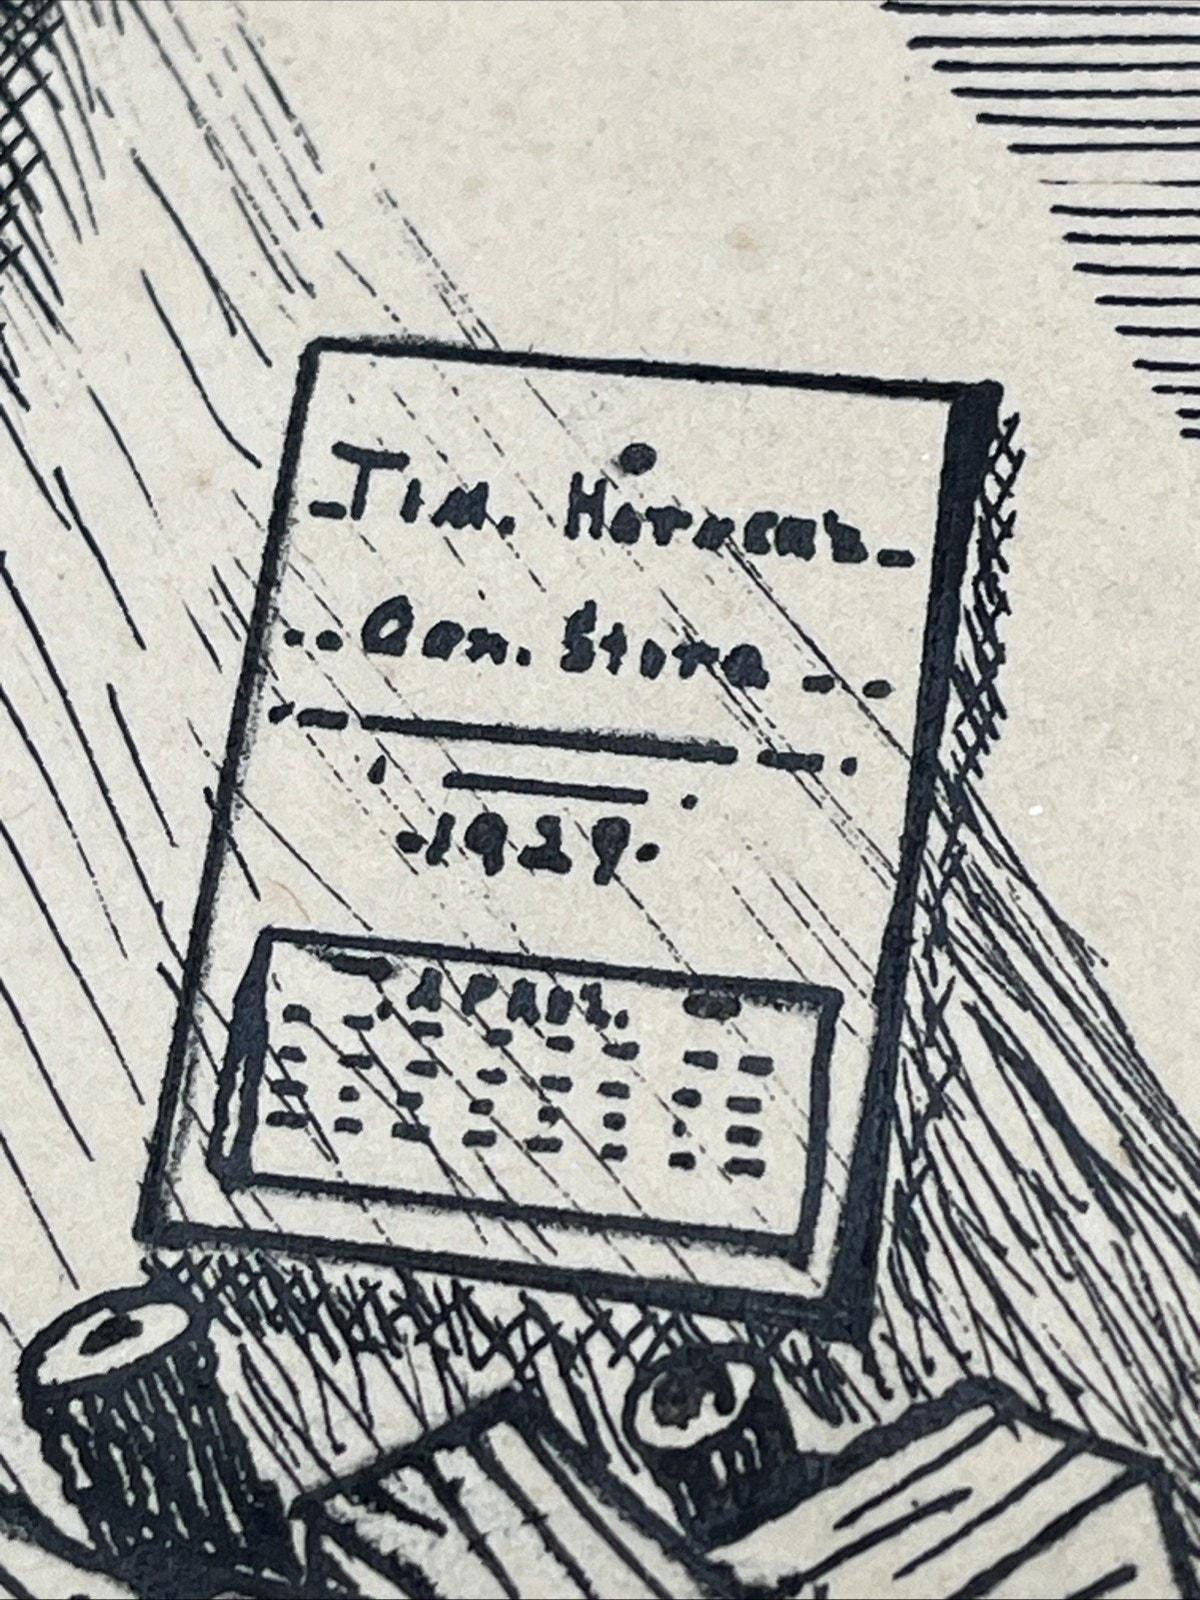 Tim.
Gen. Store
1929
APRIL.